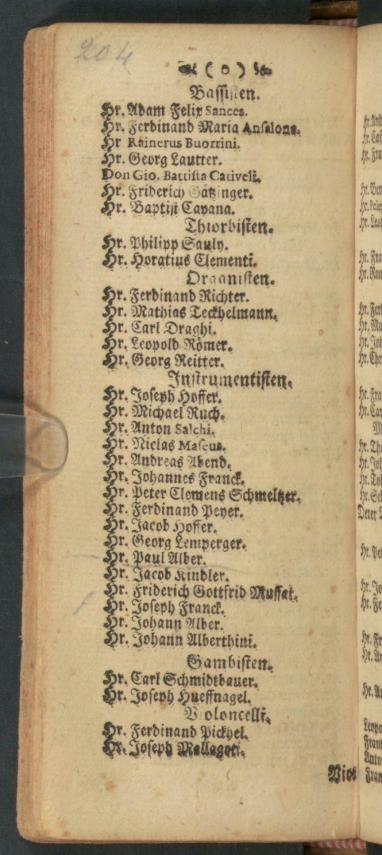 204
( 0 )
Bassisten.
Hr. Adam Felix Sances.
Hr. Ferdinand Maria Ansalons.
Hr Rainerus Buorrini.
Hr. Georg Lautter.
Don Gio. Battista Cativeli.
Hr. Friderich Götzinger.
Hr. Baptist Cavana.
Thiorbisten.
Hr. Philipp Sauly.
Hr. Horatius Clementi.
Organisten.
Hr. Ferdinand Richter.
Hr. Mathias Teckhelmann.
Hr. Carl Draghi.
Hr. Leopold Römer.
Hr. Georg Reitter.
Instrumentisten.
Hr. Joseph Hoffer.
Hr. Michael Ruch.
Hr. Anton Salchi.
Hr. Niclas Mascus.
Hr. Andreas Abend.
Hr. Johannes Franck.
Hr. Peter Clemens Schmeltzer.
Hr. Ferdinand Peyer.
Hr. Jacob Hoffer.
Hr. Georg Lemperger.
Hr. Paul Alber.
Hr. Jacob Kindler.
Hr. Friderich Gottfrid Muffat.
Hr. Joseph Franck.
Hr. Johann Alber.
Hr. Johann Alberthini.
Gambisten.
Hr. Carl Schmidtbauer.
Hr. Joseph Hueffnagel.
Voloncelli.
Hr. Ferdinand Pickhel.
Hr. Joseph Mallagoti.